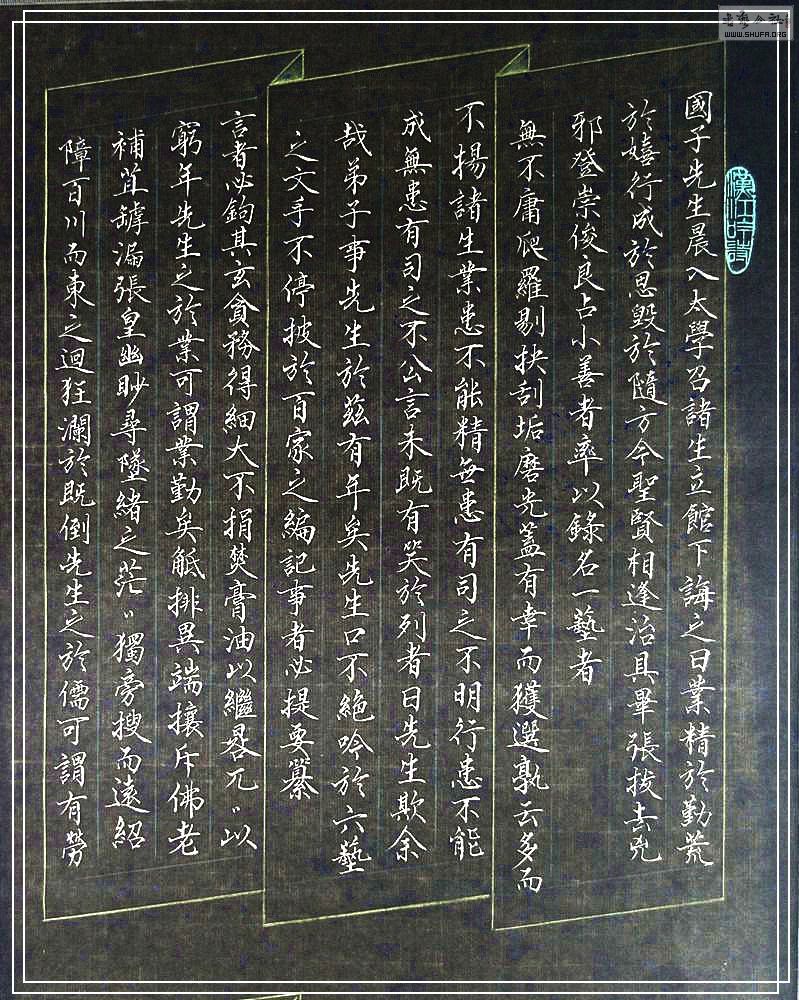 國子先生晨入太學召諸生立館下誨之曰業精於勤荒
於嬉行成於思毀於隨方今聖賢相逢治具畢張拔去兇
邪登崇俊良占小善者率以錄名一藝者
無不庸爬羅剔抉刮垢磨光蓋有幸而獲選孰云多而
不揚諸生業患不能精無患有司之不明行患不能
成無患有司之不公言未既有笑於列者曰先生欺余
哉弟子事先生於茲有年矣先生口不絕吟於六藝
之文手不停披於百家之編記事者必提要纂
言者必鉤其玄貪務得細大不捐焚膏油以繼晷兀〃以
窮年先生之於業可謂業勤矣觝排異端攘斥佛老
補苴罅漏張皇幽眇尋墜緒之茫〃獨旁搜而遠紹
障百川而東之迴狂瀾於既倒先生之於儒可謂有勞
漢江吟詩
WWW.SHUFA.ORG